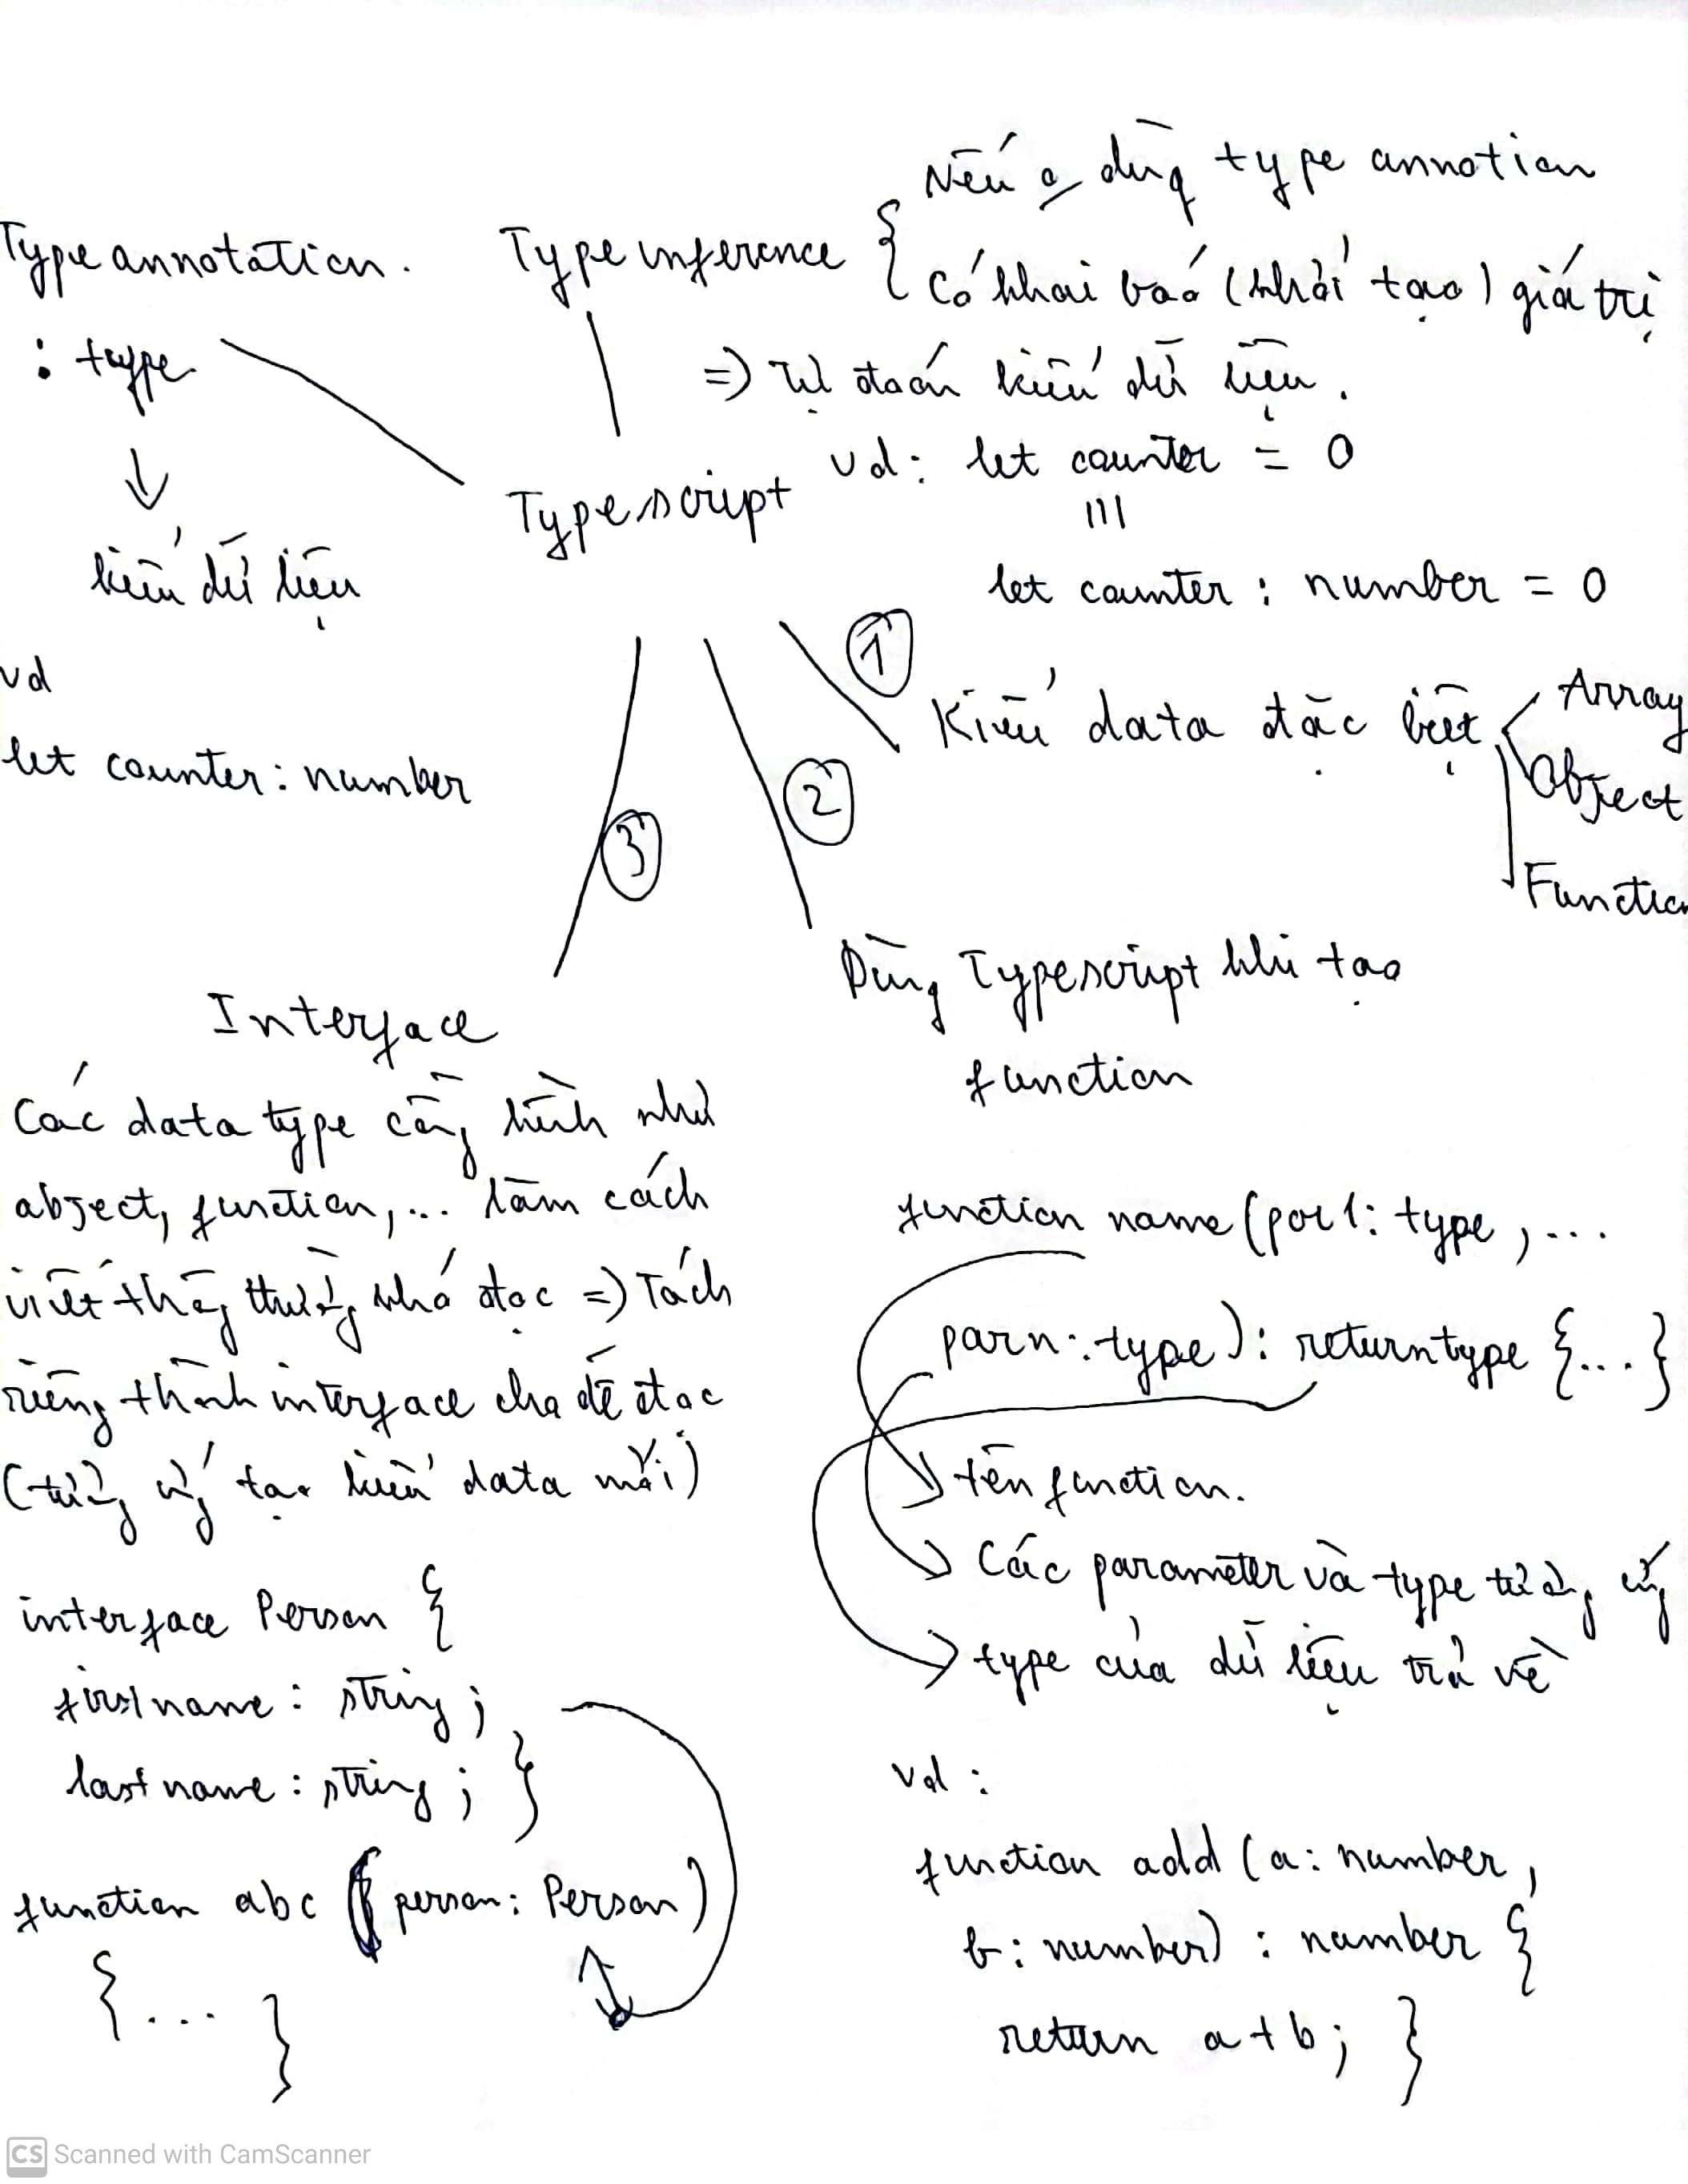 Type annotation.
: type
kiểu dữ liệu
vd
let counter: number
Type inference {
Nếu o dùng type annotion
Có khai báo (khởi tạo) giá trị
=> Tự đoán kiểu dữ liệu.
vd: let counter = 0
let counter: number = 0
Typescript
1
Kiểu data đặc biệt
Array
Object
Function
2
Dùng Typescript khi tạo
function
function name (par1: type, ...
parn: type): returntype {...}
tên function.
Các parameter và type tương ứng
type của dữ liệu trả về
vd:
function add (a: number,
b: number) : number {
return a+b; }
3
Interface
Các data type cồng kềnh như
object, function, ... làm cách
viết thông thường khó đọc => Tách
riêng thành interface cho dễ đọc
(tương ứng tạo kiểu data mới)
interface Person {
firstname: string;
lastname: string; }
function abc (person: Person)
{...
}
CS Scanned with CamScanner